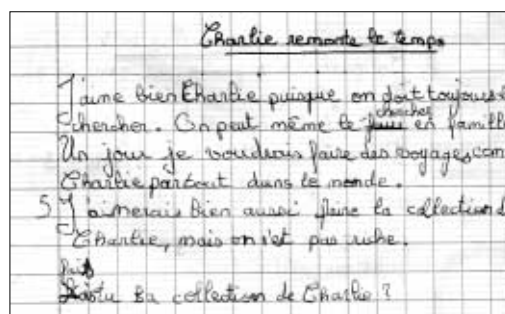 Charlie remonte le temps
J'aime bien Charlie puisque on doit toujours l
chercher. On peut même le chercher en famill
Un jour je voudrais faire des voyages, com
Charlie partout dans le monde.
5 J'aimerais bien aussi faire la collection d
Charlie, mais on n'est pas riche.
Fais
tu ta collection de Charlie ?